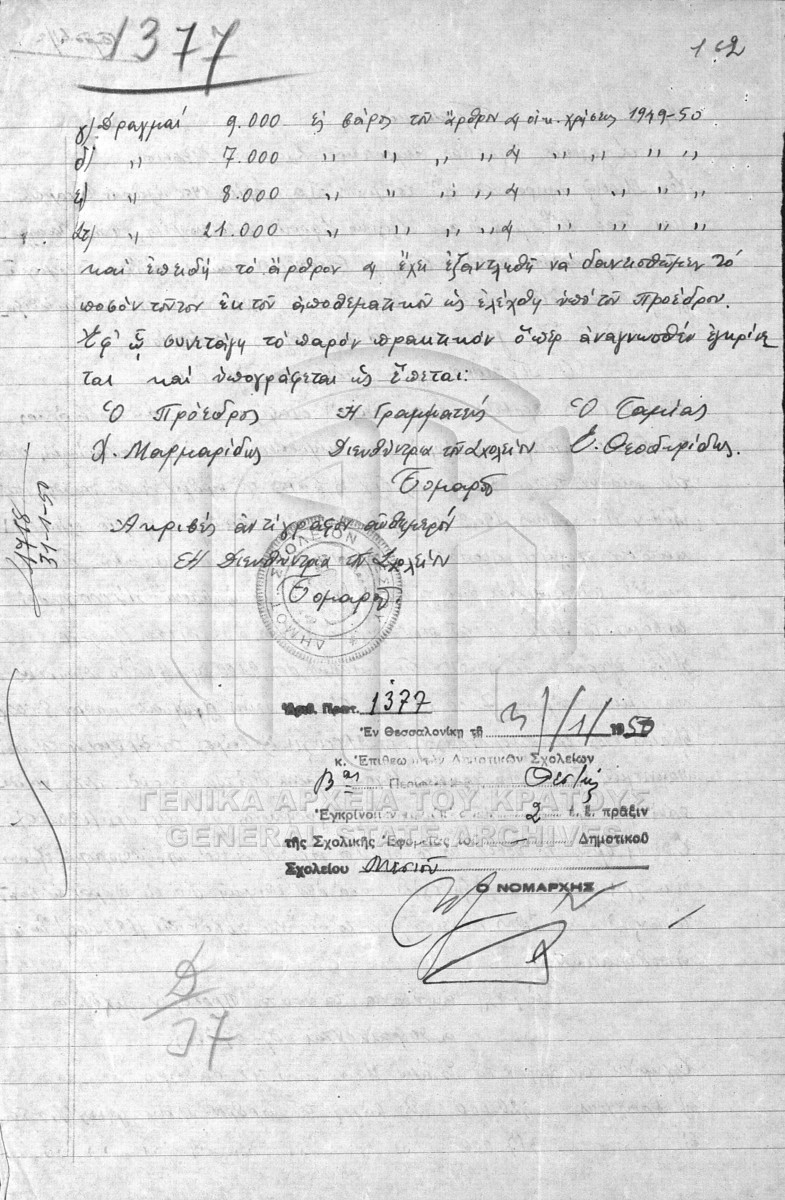 1377
102
γ) Δραχμαί 9.000 εἰς βάρος τοῦ ἄρθρου 4 οἰκ. χρήσεως 1949-50
δ) ,, 7.000 ,, ,, ,, ,, 4 ,, ,, ,,
ε) ,, 8.000 ,, ,, ,, ,, 4 ,, ,, ,,
στ) ,, 21.000 ,, ,, ,, ,, 4 ,, ,, ,,
καί ἐπειδή τό ἄρθρον 4 ἔχει ἐξαντληθῆ νά δανεισθῶμεν τό
ποσόν τοῦτον ἐκ τοῦ ἀποθεματικοῦ ὡς ἐλέχθη ὑπό τοῦ Προέδρου.
Ἐφ' ᾧ συνετάγη τό παρόν πρακτικόν ὅπερ ἀναγνωσθέν ἐγκρίνε
ται καί ὑπογράφεται ὡς ἕπεται:
Ὁ Πρόεδρος Ἡ Γραμματεύς Ὁ Ταμίας
Χ. Μαρμαρίδης Διευθύντρια τοῦ Σχολείου Θεοδωρίδης.
Ἀκριβές ἀντίγραφον αὐθημερόν
Ἡ Διευθύντρια τοῦ Σχολείου
ΔΗΜΟΤ. ΣΧΟΛΕΙΟΝ
4758
31-1-50
Ἀριθ. Πρωτ. 1377
Ἐν Θεσσαλονίκῃ τῇ 31/1/1950
κ. Ἐπιθεωρητήν Δημοτικῶν Σχολείων
Βας Περιφερείας Θεσ/κης
Ἐγκρίνομεν 2 ἐ. ἔ. πρᾶξιν
τῆς Σχολικῆς Ἐφορείας τοῦ Δημοτικοῦ
Σχολείου Μεσιοῦ
Ο ΝΟΜΑΡΧΗΣ
ΓΕΝΙΚΑ ΑΡΧΕΙΑ ΤΟΥ ΚΡΑΤΟΥΣ
GENERAL STATE ARCHIVES
Δ/37